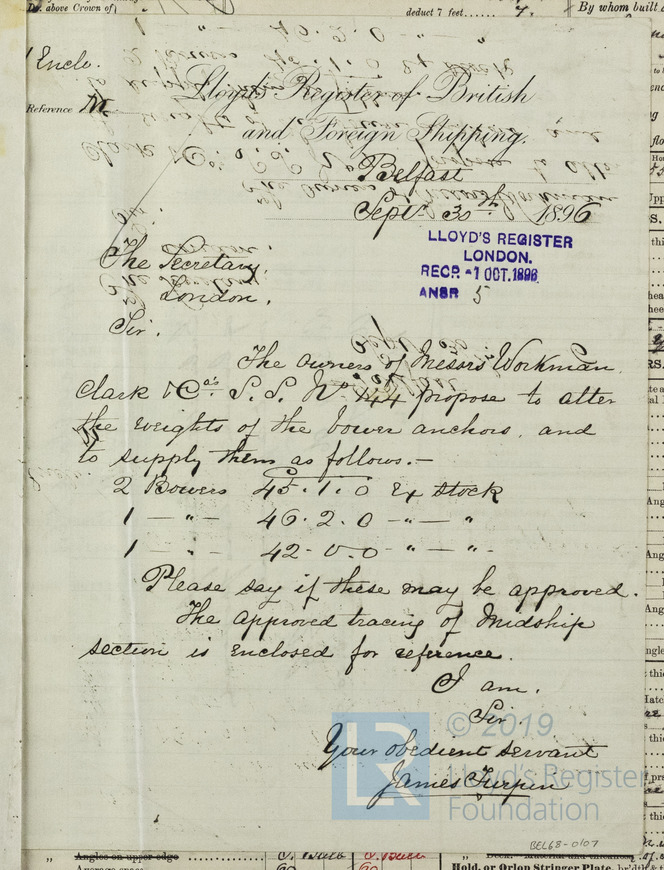 Dr. above Crown of
deduct 7 feet
7.
By whom built
1 Enclo.
Reference
Lloyd's Register of British
and Foreign Shipping.
Belfast
Sept. 30th 1896
LLOYD'S REGISTER
LONDON.
RECD -1 OCT. 1896
ANSR 5
The Secretary,
London.
Sir.
The owners of Messrs Workman
Clark & Cos. S.S. No 144 propose to alter
the weights of the bower anchors. and
to supply them as follows.-
2 Bowers 45.1.0 Ex stock
1 — " — 46.2.0 - " — "
1 — " — 42.0.0 - " — " -
Please say if these may be approved.
The approved tracing of Midship
section is enclosed for reference.
I am.
Sir.
Your obedient servant
James Turpin
© 2019
LR
Lloyd's Register
Foundation
BEL68-0107
" Angles on upper edge
Average space
Hold, or Orlop Stringer Plate,